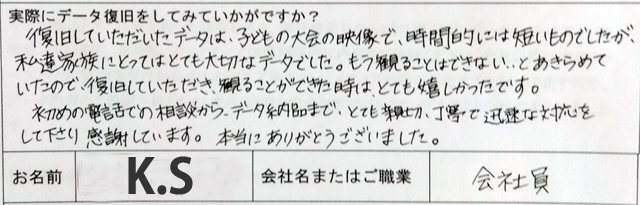 実際にデータ復旧をしてみていかがですか？
復旧していただいたデータは、子どもの大会の映像で、時間的には短いものでしたが、
私達家族にとってはとても大切なデータでした。もう観ることはできない、とあきらめて
いたので、復旧していただき、観ることができた時は、とても嬉しかったです。
初めの電話での相談から、データ納品まで、とても親切、丁寧で迅速な対応を
して下さり感謝しています。本当にありがとうございました。
お名前 K.S 会社名またはご職業 会社員